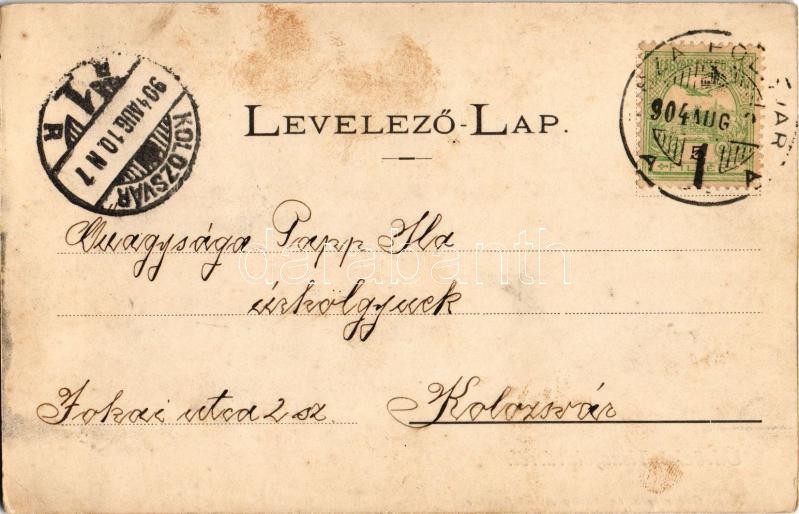 LEVELEZŐ-LAP.
KOLOZSVÁR
904 AUG 10. N 7
1
R
904 AUG
1
5
Nagysága Papp Ila
úrhölgynek
Jokai utca 2 sz.
Kolozsvár
darabanth